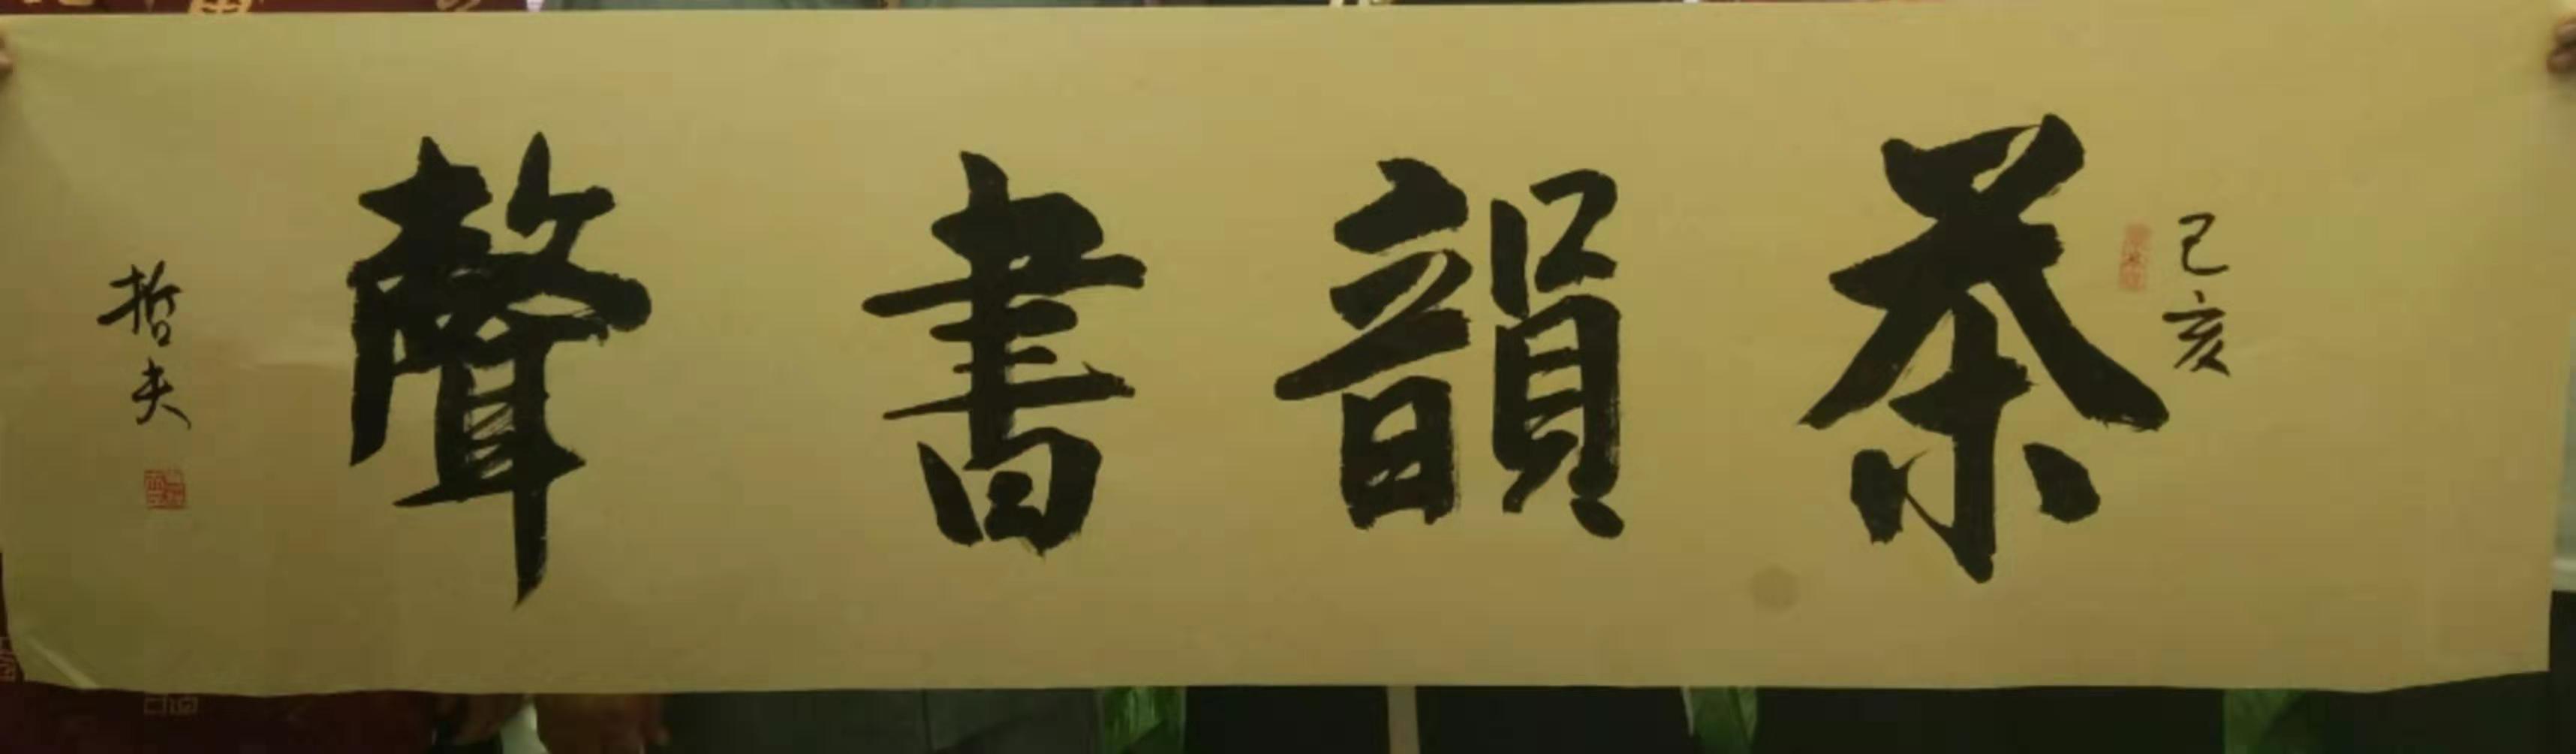 己亥
茶韻書聲
哲夫